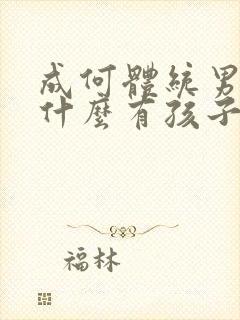 成何體統男
什麼有孩子
福林